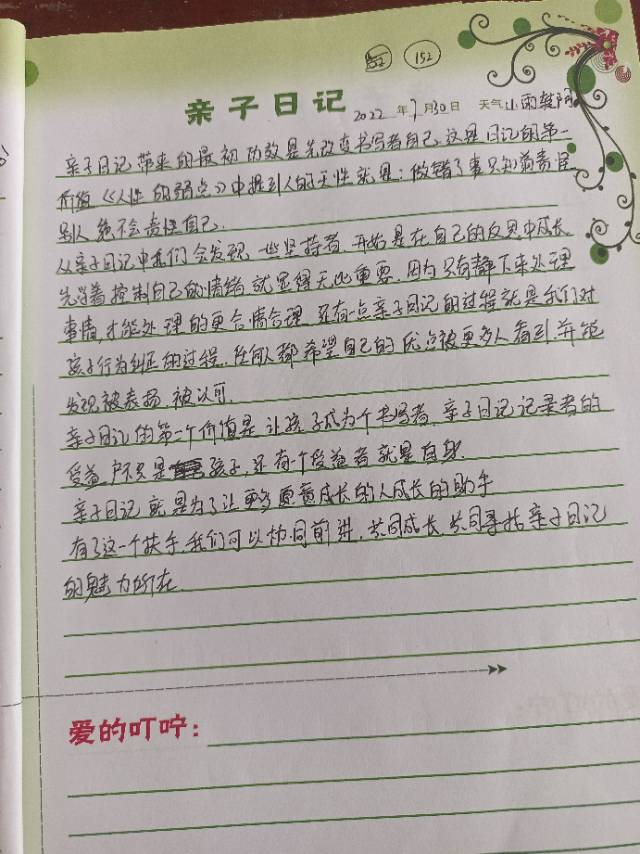 152
亲子日记 2022年7月30日 天气小雨转阴
亲子日记带来的最初功效是先改变书写者自己。这是日记的第一
价值《人性的弱点》中提到人的天性就是:做错了事只知道责怪
别人绝不会责怪自己.
从亲子日记中我们会发现 坚持者 开始是在自己的反思中成长
先学着控制自己的情绪就显得无比重要.因为只有静下来处理
事情,才能处理的更合情合理 还有一点亲子日记的过程就是我们对
孩子行为纠正的过程.任何人都希望自己的优点被更多人看到.并能
发现被表扬.被认可.
亲子日记的第二个价值是让孩子成为个书写者.亲子日记记录者的
受益 不只是孩子,还有个受益者就是自身.
亲子日记就是为了让更多愿意成长的人成长的助手
有了这一个扶手,我们可以协同前进.共同成长.共同寻找亲子日记
的魅力所在.
爱的叮咛: